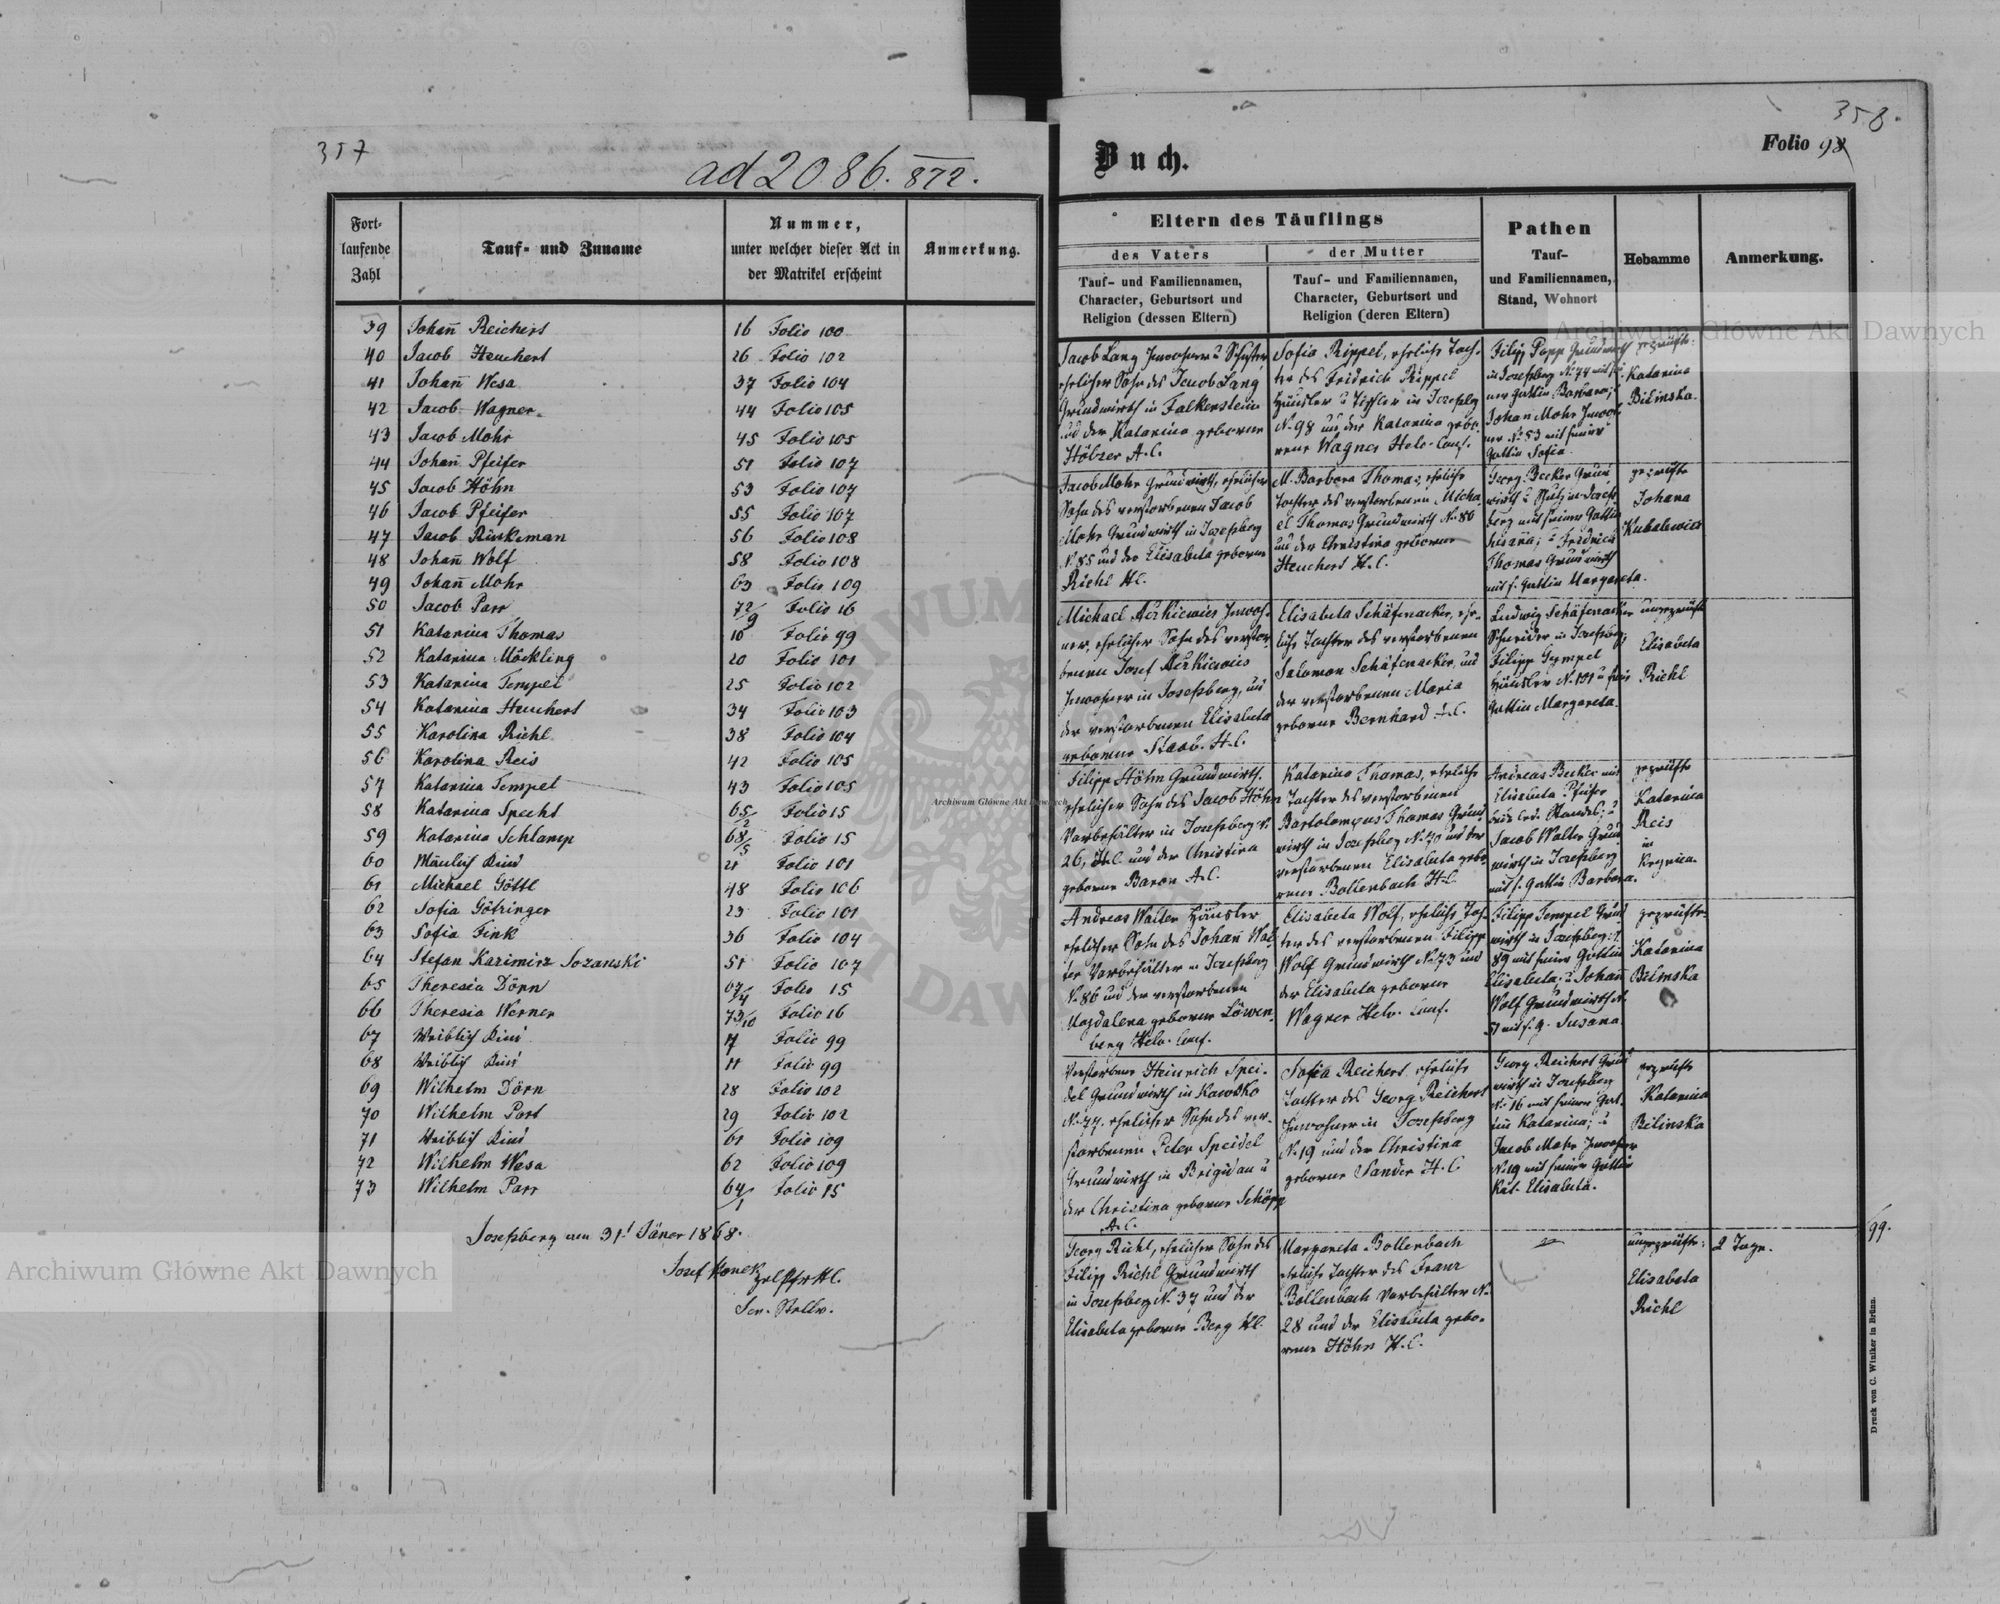 357
ad 2086. 872.
Fort-
laufende
Zahl
Tauf- und Zuname
Nummer,
unter welcher dieser Act in
der Matrikel erscheint
Anmerkung.
39 Johañ Reichert 16 Folio 100
40 Jacob Heuchert 26 Folio 102
41 Johañ Wesa 37 Folio 104
42 Jacob Wagner 44 Folio 105
43 Jacob Mohr 45 Folio 105
44 Johañ Pfeifer 51 Folio 107
45 Jacob Höhn 53 Folio 107
46 Jacob Pfeifer 55 Folio 107
47 Jacob Rinkeman 56 Folio 108
48 Johañ Wolf 58 Folio 108
49 Johañ Mohr 63 Folio 109
50 Jacob Parr 72/9 Folio 16
51 Katarina Thomas 10 Folio 99
52 Katarina Möckling 20 Folio 101
53 Katarina Tempel 25 Folio 102
54 Katarina Heuchert 34 Folio 103
55 Karolina Richl 38 Folio 104
56 Karolina Reis 42 Folio 105
57 Katarina Tempel 43 Folio 105
58 Katarina Specht 65/2 Folio 15
59 Katarina Schlamp 68/5 Folio 15
60 Mäńlich Kind 21 Folio 101
61 Michael Göttl 48 Folio 106
62 Sofia Götzinger 23 Folio 101
63 Sofia Fink 36 Folio 104
64 Stefan Kazimirz Sozanski 51 Folio 107
65 Theresia Dörn 67/4 Folio 15
66 Theresia Werner 73/10 Folio 16
67 Weiblich Kind 7 Folio 99
68 Weiblich Kind 11 Folio 99
69 Wilhelm Dörn 28 Folio 102
70 Wilhelm Port 29 Folio 102
71 Weiblich Kind 61 Folio 109
72 Wilhelm Wesa 62 Folio 109
73 Wilhelm Parr 64/1 Folio 15
Josefsberg am 31t Jäner 1868.
Josef Hanek
358.
Buch.
Folio 98
Eltern des Täuflings
des Vaters
Tauf- und Familiennamen,
Character, Geburtsort und
Religion (dessen Eltern)
der Mutter
Tauf- und Familiennamen,
Character, Geburtsort und
Religion (deren Eltern)
Pathen
Tauf-
und Familiennamen,
Stand, Wohnort
Hebamme
Anmerkung.
Jacob Lang Inwohner u Schuster,
ehelicher Sohn des Jacob Lang
Grundwirth in Falkenstein
und der Katarina geborne
A.C.
Sofia Rippel, eheliche Toch-
ter des Fridrich Rippel
Häusler u Tischler in Josefsbg
N. 98 und der Katarina gebo-
rene Wagner Helv. Conf.
Filip Popp Grundwirth
in Josefsberg N. 74 mit sei-
ner Gattin Barbara;
Johan Mohr Inwoh
ner N. 53 mit seiner
Gattin Sofia
geprüfte:
Katarina
Bilinska.
Jacob Mohr Grundwirth, ehelicher
Sohn des verstorbenen Jacob
Mohr Grundwirth in Josefsberg
N. 85 und der Elisabeta geborne
Richl H.C.
M. Barbara Thomas, eheliche
Tochter des verstorbenen Micha
el Thomas Grundwirth N. 86
und der Christina geborne
Heuchert H.C.
Georg Becker Grund
wirth u Schulz in Josefs
berg mit seiner Gattin
Susana; u Fridrich
Thomas Grundwirth
mit s. Gattin Margareta.
geprüfte
Johana
Kubalewicz
Michael Inwoh-
ner, ehelicher Sohn des verstor-
benen Josef
Inwohner in Josefsberg, und
der verstorbenen Elisabeta
geborne Staab. H.C.
Elisabeta Schäfenacker, ehe-
liche Tochter des verstorbenen
Salomon Schäfenacker, und
der verstorbenen Maria
geborne Bernhard A.C.
Ludwig Schäfenacker
Schneider in Josefsberg;
Filipp Gympel
Häusler N. 101 u seine
Gattin Margareta.
ungeprüfte
Elisabeta
Richl
Filipp Höhn Grundwirth.
ehelicher Sohn des Jacob Höhn
Vorbehälter in Josefsberg N.
26, H.C. und der Christina
geborne Baron A.C.
Katarina Thomas, eheliche
Tochter des verstorbenen
Bartolomeus Thomas Grund
wirth in Josefsberg N. 40 und der
verstorbenen Elisabeta gebo
rene Bollenbach H.C.
Andreas Becker mit
Elisabeta Pfeifer
beide led. Standes; u
Jacob Walter Grund
wirth in Josefsberg
mit s. Gattin Barbara.
geprüfte
Katarina
Reis
in
Krynica.
Andreas Walter Häusler
ehelicher Sohn des Johañ Wal
ter Vorbehälter in Josefsberg
N. 86 und der verstorbenen
Magdalena geborne Löwen-
berg Helv. Conf.
Elisabeta Wolf, eheliche Toch
ter des verstorbenen Filipp
Wolf Grundwirth N. 73 und
der Elisabeta geborne
Wagner Helv. Conf.
Filipp Tempel Grund
wirth in Josefsberg N.
89 mit seiner Gattin
Elisabeta; u Johañ
Wolf Grundwirth N.
51 mit s. G. Susana.
geprüfte
Katarina
Bilinska
Verstorbene Heinrich Spei-
del Grundwirth in Kawsko
N. 77. ehelicher Sohn des ver-
storbenen Peter Speidel
Grundwirth in Brigidau u
der Christina geborne Schöpp
A.C.
Sofia Reichert eheliche
Tochter des Georg Reichert
Inwohner in Josefsberg
N. 19 und der Christina
geborne Sander H.C.
Georg Reichert Grund
wirth in Josefsberg
N. 16 mit seiner Gat-
tin Katarina; u
Jacob Mohr Inwohner
N. 19 mit seiner Gattin
Kat. Elisabeta.
geprüfte
Katarina
Bilinska
Georg Richl, ehelicher Sohn des
Filipp Richl Grundwirth
in Josefsberg N. 37 und der
Elisabeta geborne Berg H.C.
Margareta Bollenbach
eheliche Tochter des Franz
Bollenbach Vorbehälter N.
28 und der Elisabeta gebo-
rene Höhn H.C.
ungeprüfte:
Elisabeta
Richl
2 Tage.
99.
Druck von C. Winiker in Brünn.
Archiwum Główne Akt Dawnych
Archiwum Główne Akt Dawnych
Archiwum Główne Akt Dawnych